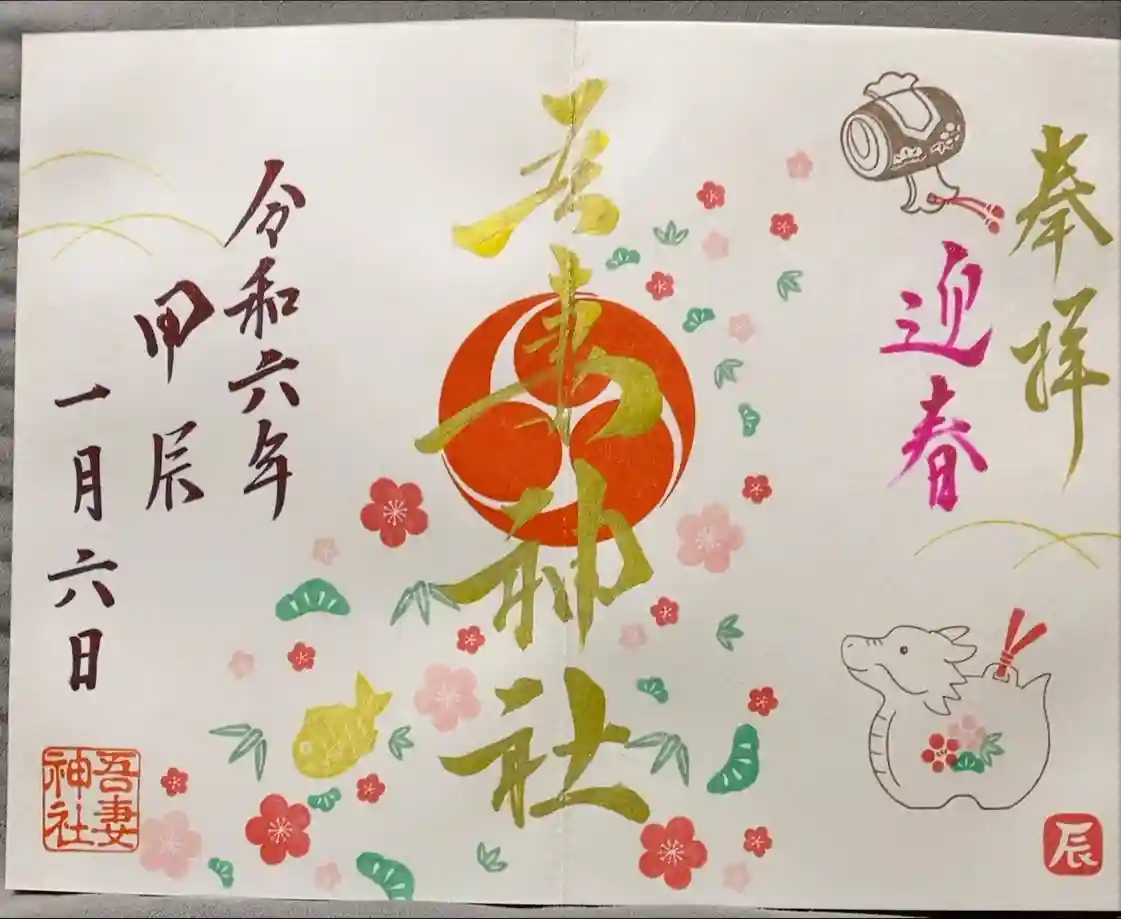 奉拝
迎春
吾妻神社
令和六年
甲辰
一月六日
吾妻
神社
辰